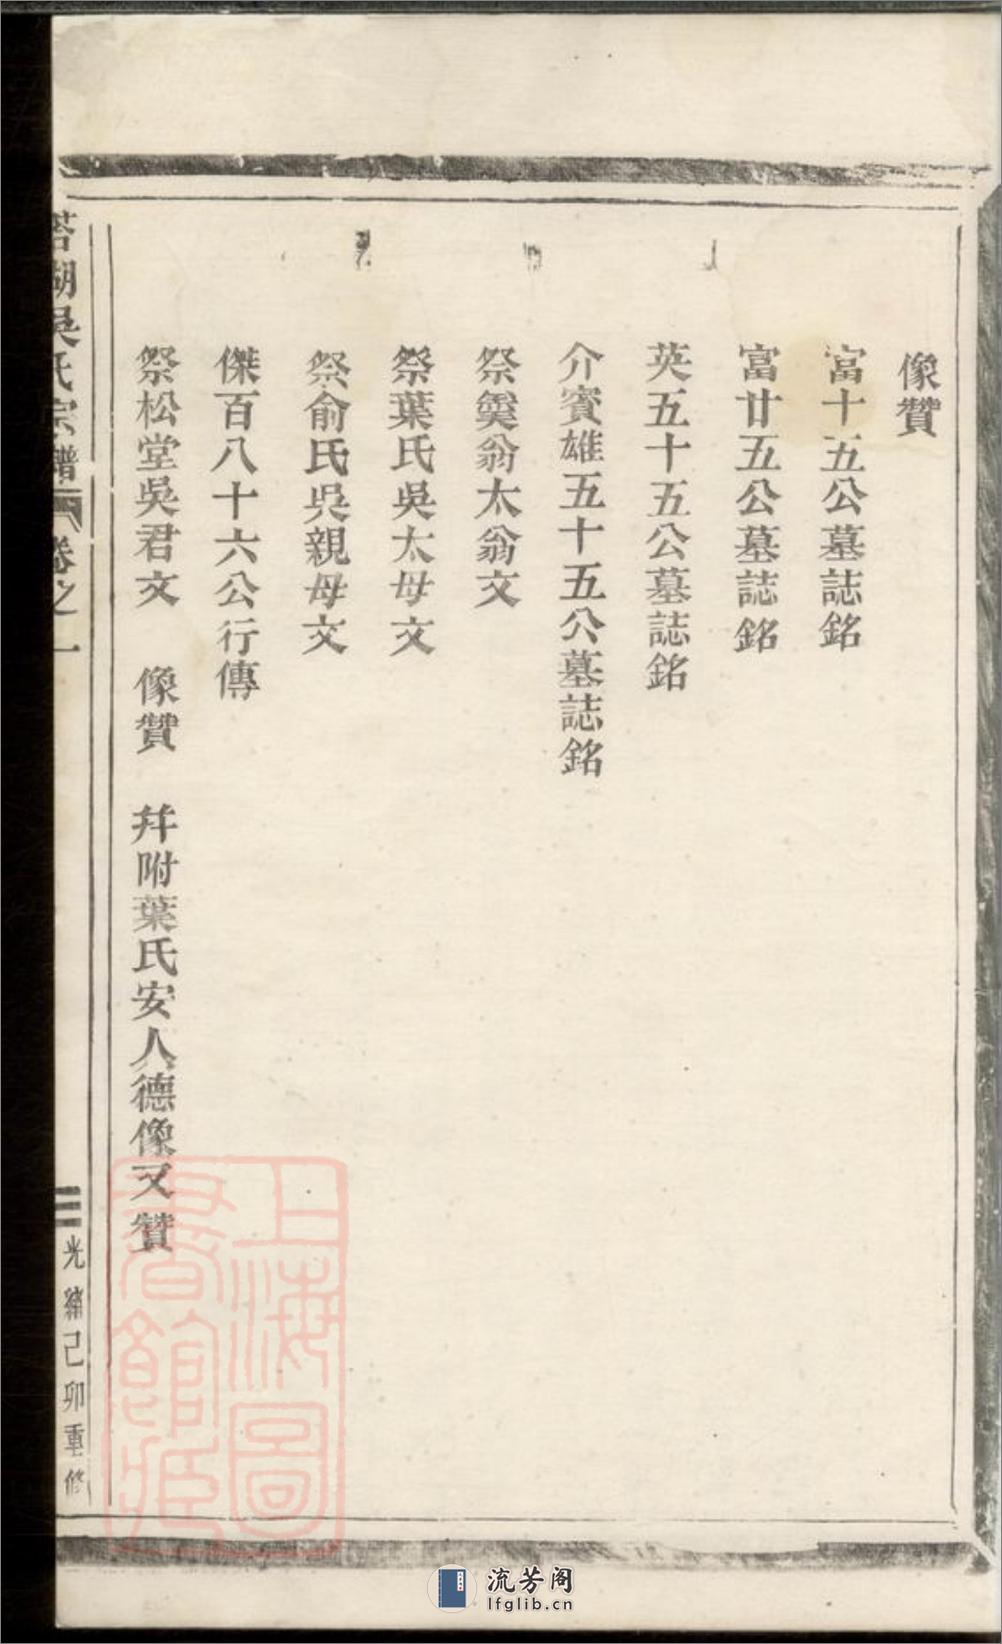 像贊
富十五公墓誌銘
富廿五公墓誌銘
英五十五公墓誌銘
介賓雄五十五公墓誌銘
祭奠翁太翁文
祭葉氏吳太母文
祭俞氏吳親母文
傑百八十六公行傳
祭松堂吳君文 像贊 幷附葉氏安人德像又贊
湖吳氏宗譜 卷之一 三 光緒己卯重修
上海圖書館藏
流芳阁
lfglib.cn